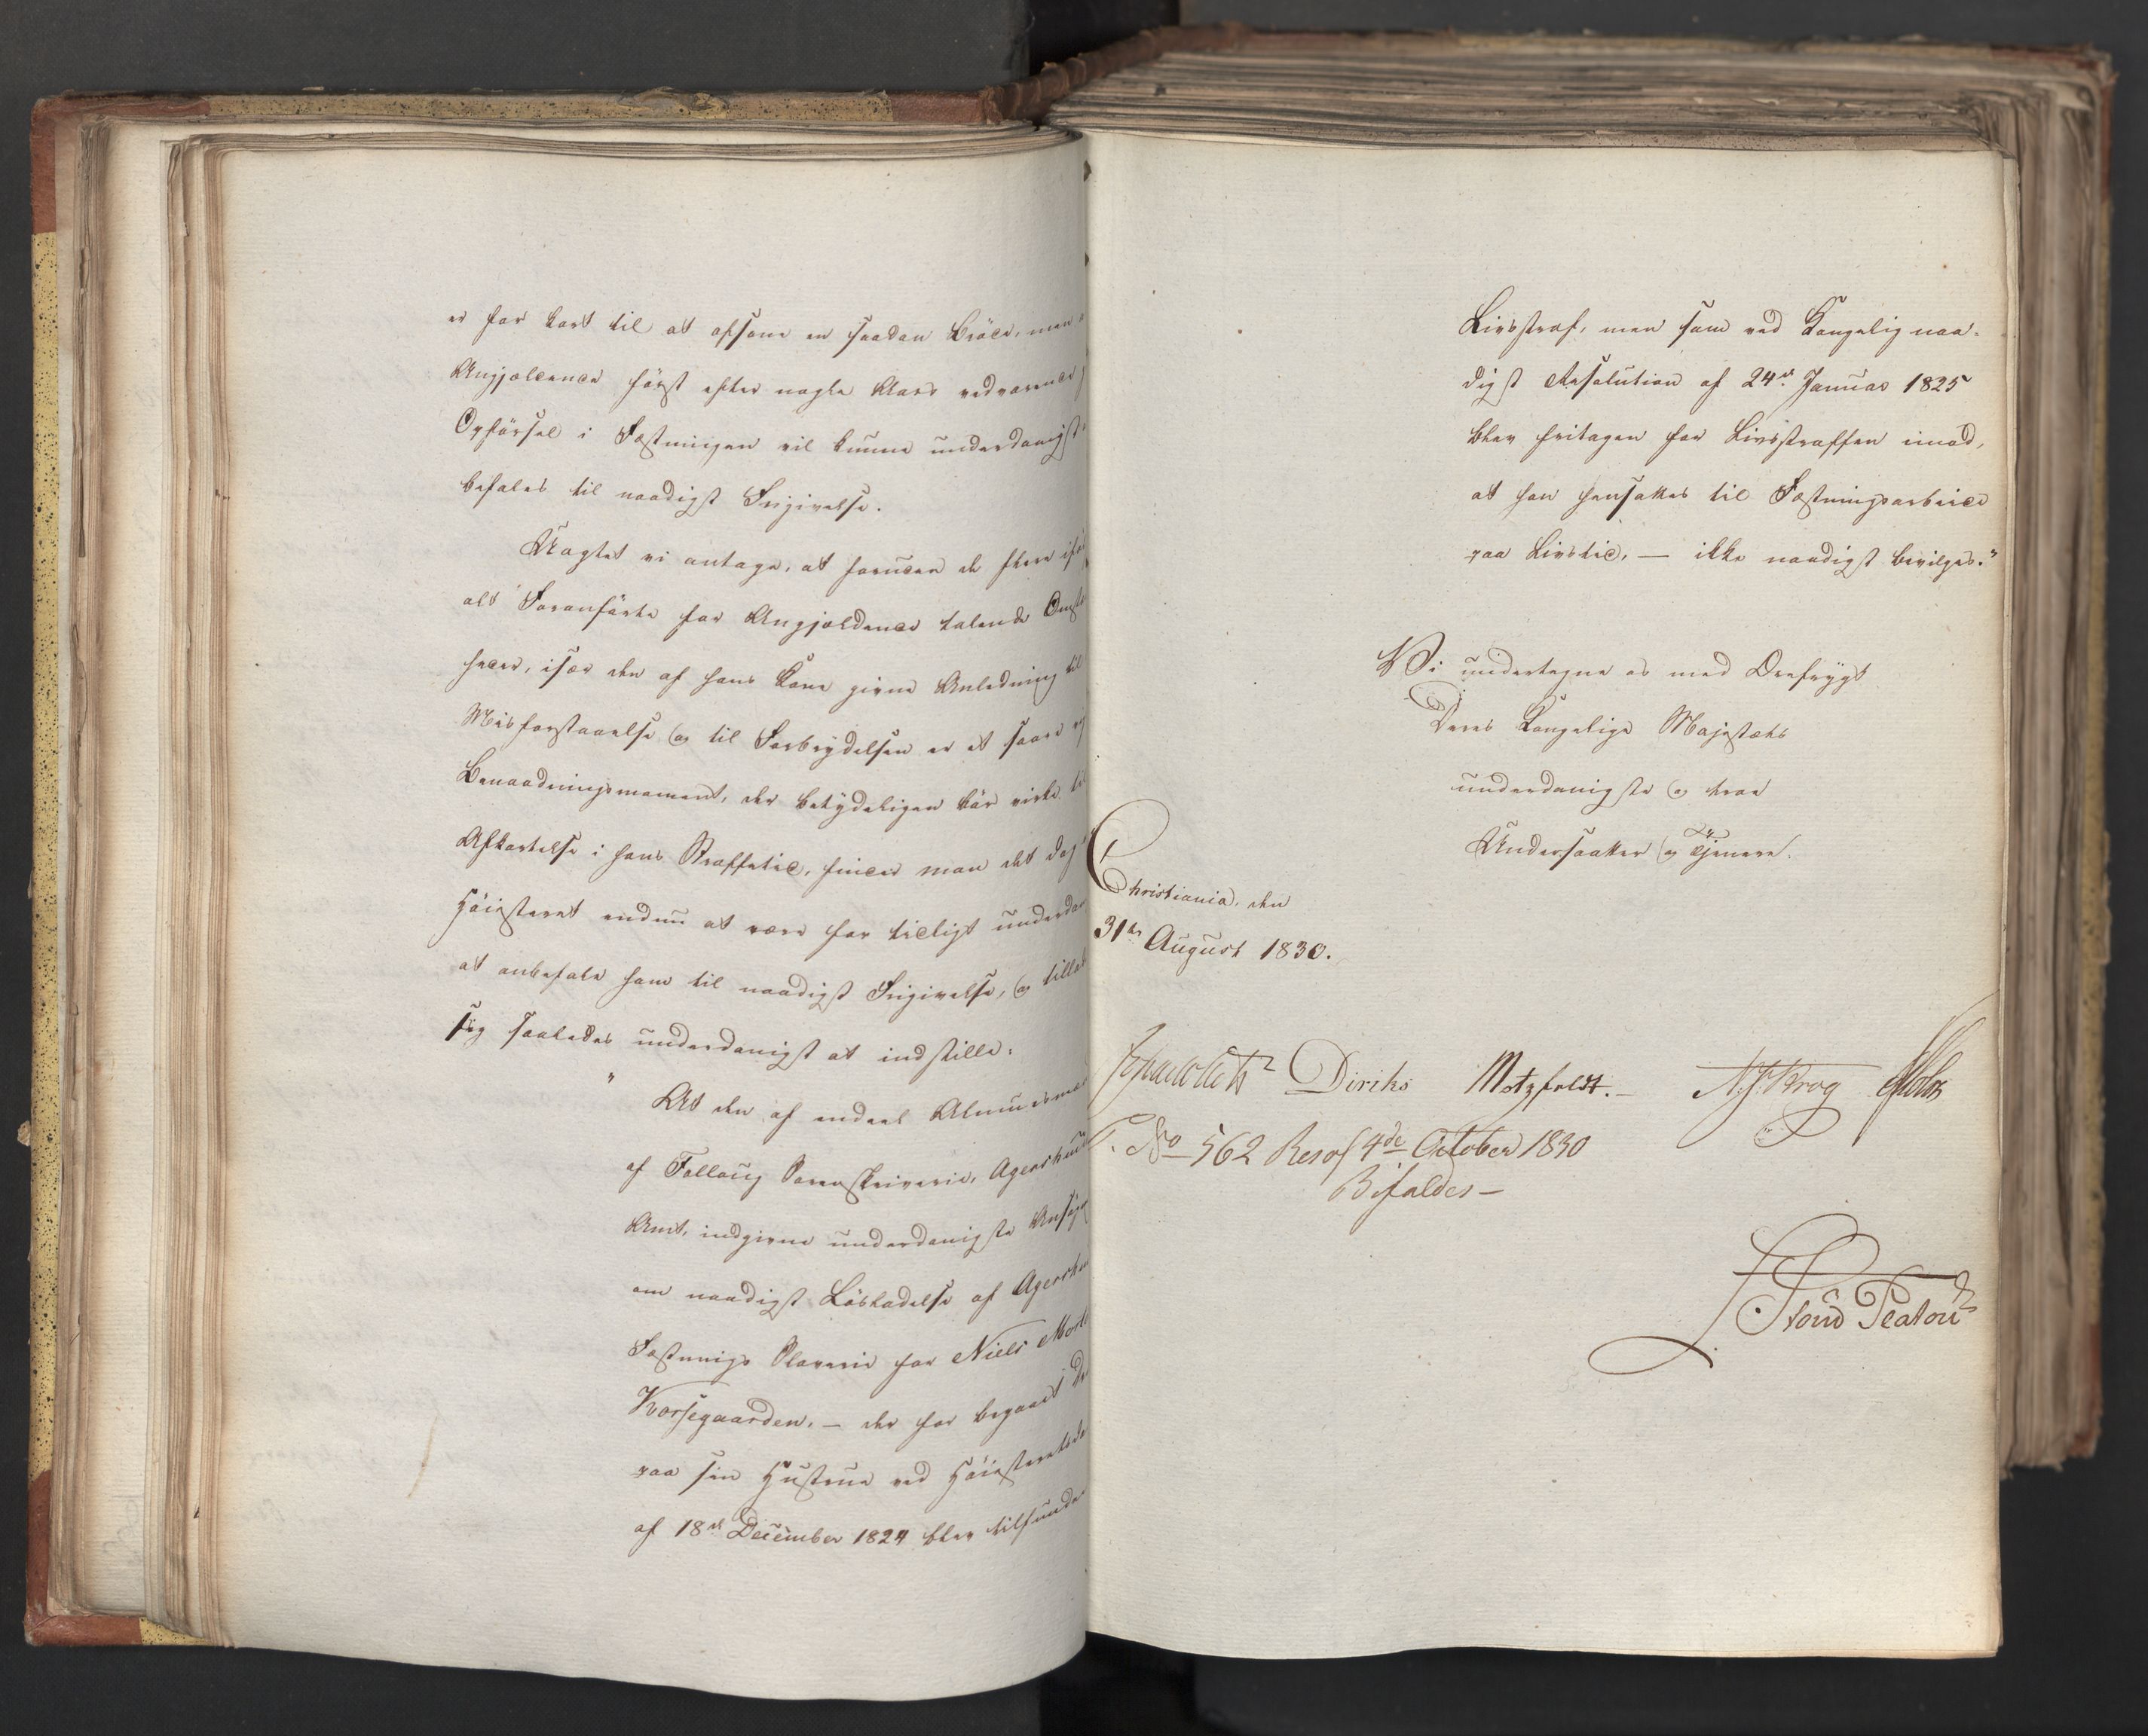 er for kort til at afsone en saadan Bröde, men
Angjældende först efter nogle Aars vedvarende
Opförsel i Fæstningen vil kunne underdanigst
befales til naadigst Frigivelse.
Uagtet vi antage, at foruden de flere
alt Foranförte for Angjældende talende
heder, især den af hans Kone givne Anledning til
Misforstaaelse og til Forbrydelsen er et saare
Benaadningsmoment, der betydeligen bör virke til
Afkortelse i hans Straffetid, finder man det dog
Höiesteret endnu at være for tidligt
at anbefale ham til naadigst Frigivelse, og
sig saaledes underdanigst at indstille:
" At den af endeel Almuesmæ
af Folloug Sorenskriverie, Agershuus
Amt, indgivne underdanigste Ansög
om naadigst Lösladelse af Agershuus
Fæstnings Slaverie for Niels Morte
Korsegaarden, – der for begaaet
paa sin Hustrue ved Höiesteretsdo
af 18de December 1824 blev tilfunde
Livsstraf, men som ved Kongelig naa-
digst Resolution af 24de Januar 1825
blev fritagen for Livsstraffen imod,
at han hensattes til Fæstningsarbeide
paa Livstid, – ikke naadigst bevilges."
Vi undertegne os med Ærefrygt
Deres Kongelige Majestæts
underdanigste og troe
Undersaatter og Tjenere.
Christiania, den
31te August 1830.
Diriks Motzfeldt. – Krog
No 562 Resol 4de October 1830
Bifaldes –